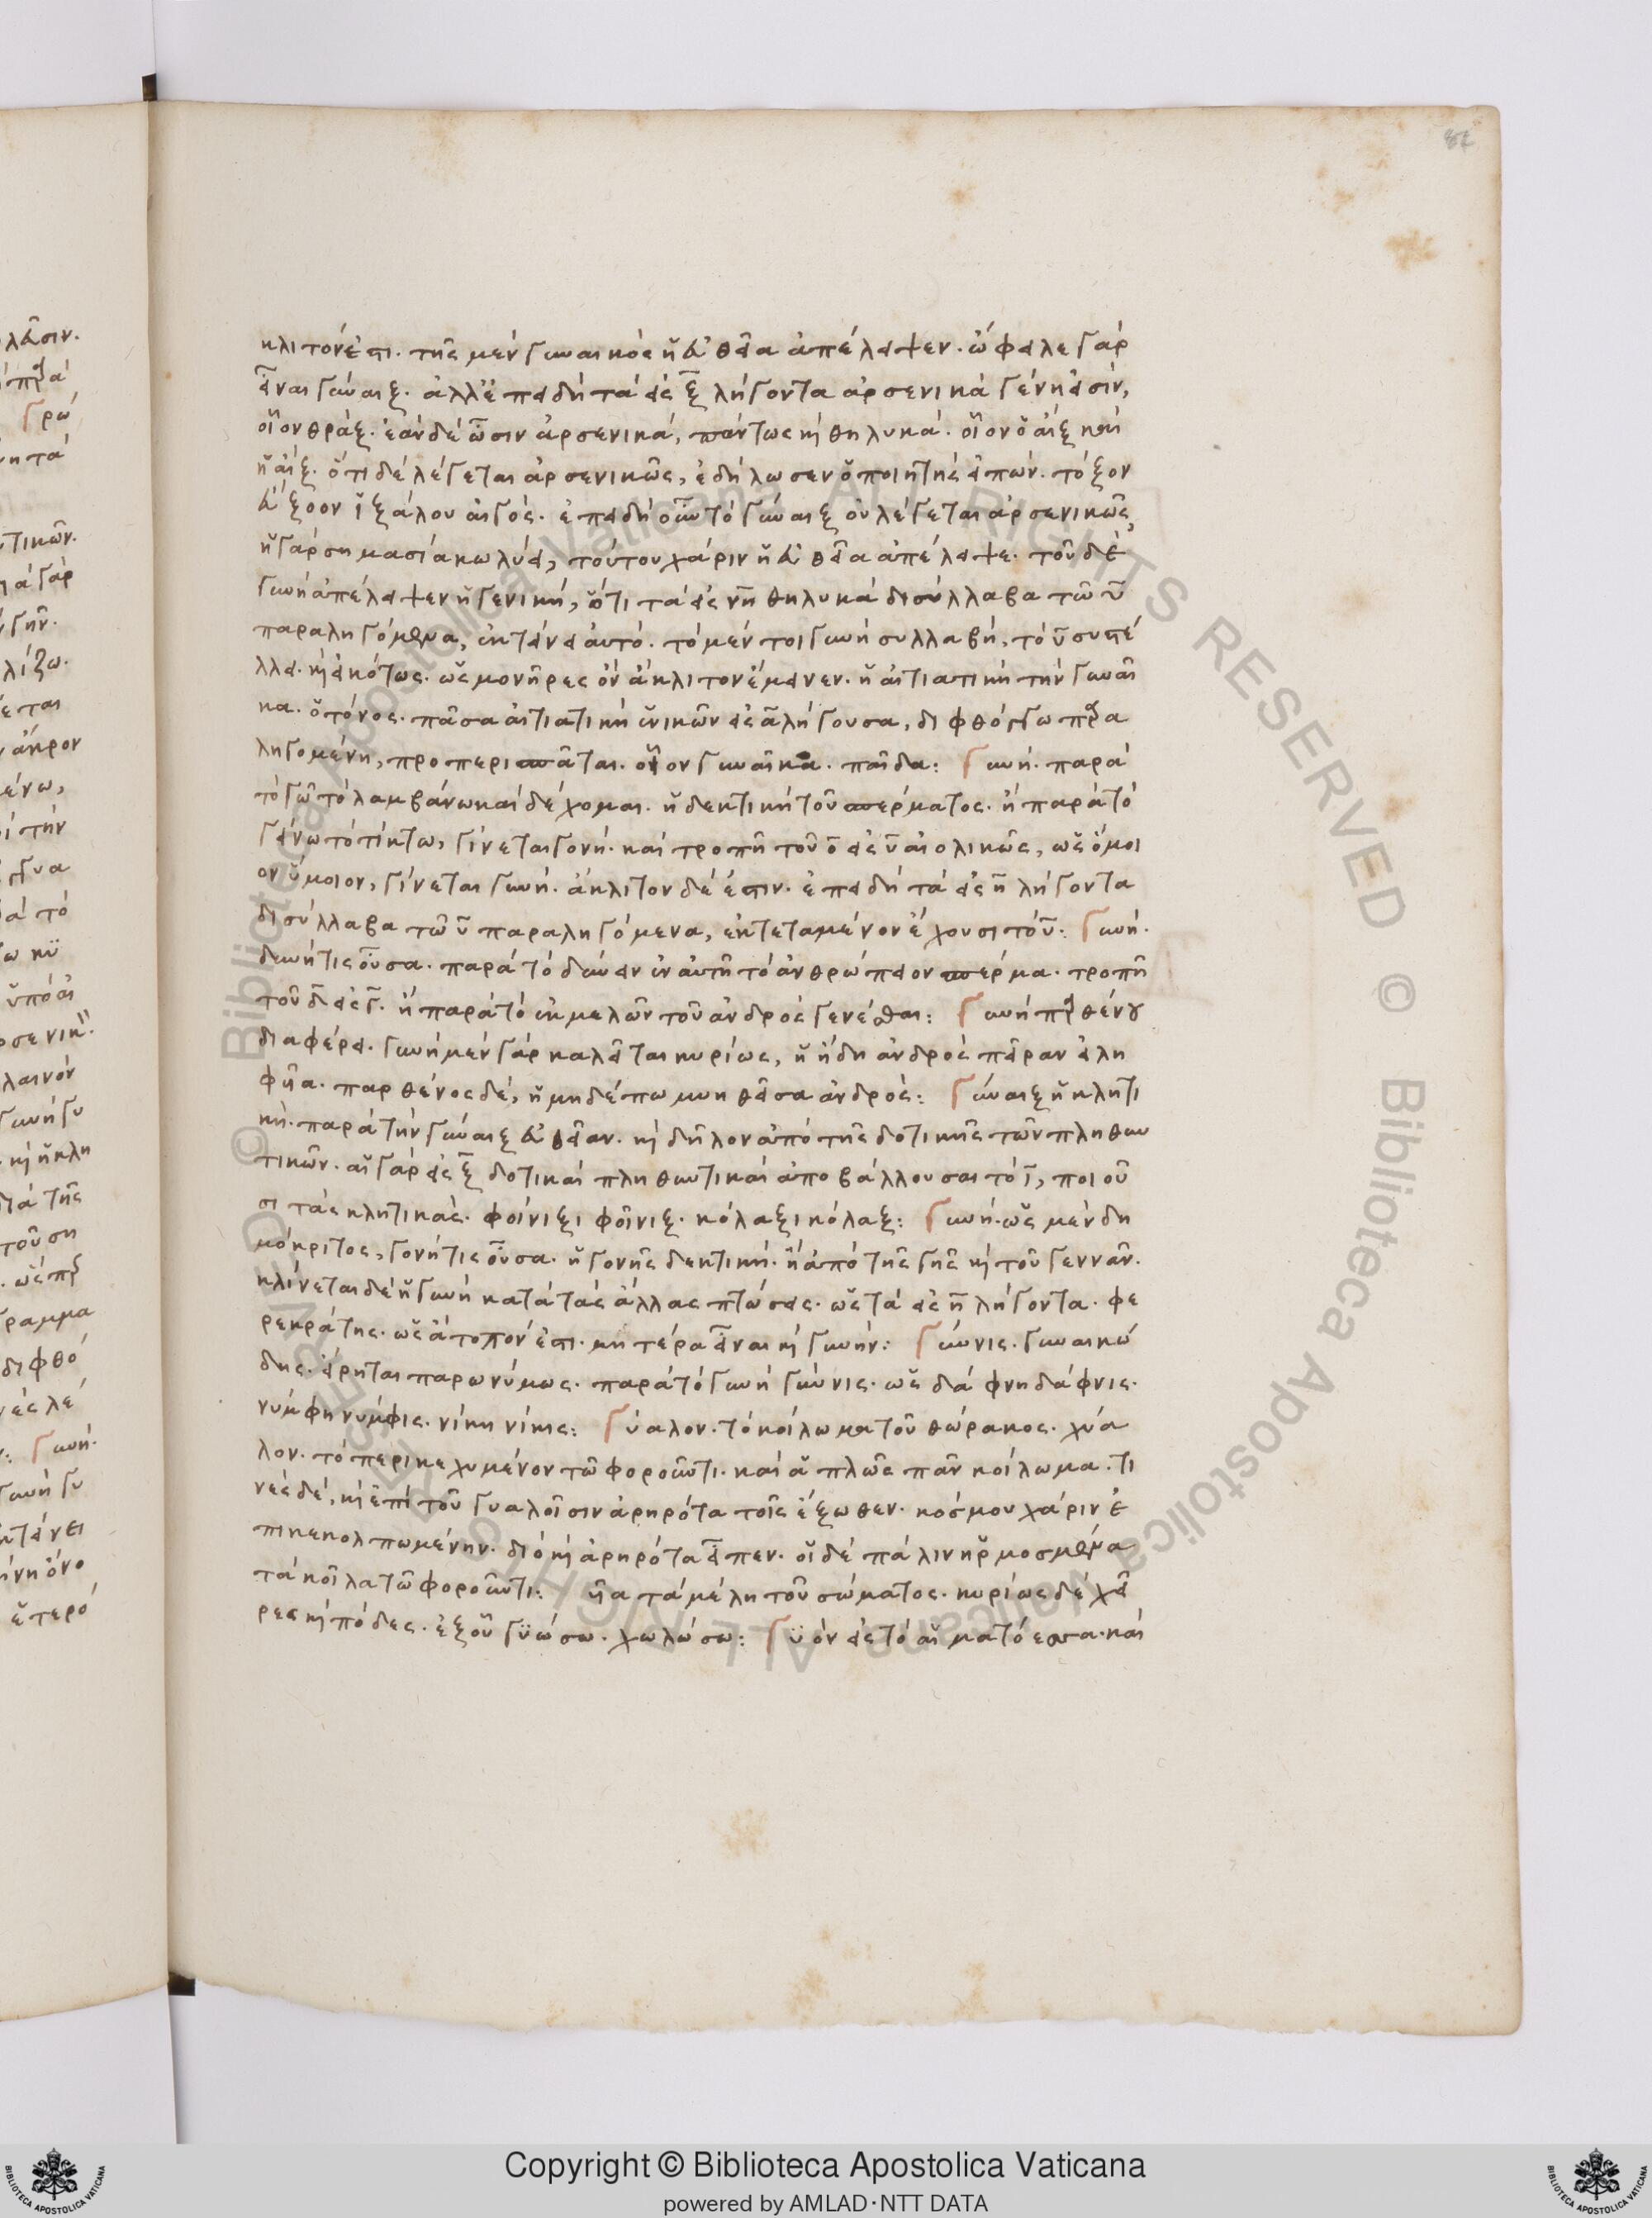 κλιτον ἐστι. τῆς μὲν γυναικὸς ἡ εὐθεῖα ἀπέλειψεν. ὤφειλε γὰρ
εἶναι γύναιξ. ἀλλ' ἐπειδὴ τὰ εἰς ξ λήγοντα ἀρσενικὰ γένη εἰσίν,
οἷον θράξ. ἐὰν δὲ ὦσιν ἀρσενικά, πάντως καὶ θηλυκά. οἷον ὁ αἲξ καὶ
ἡ αἴξ. ὅτι δὲ λέγεται ἀρσενικῶς, ἐδήλωσεν ὁ ποιητὴς εἰπών. τόξον
ἐύξοον ἰξάλου αἰγός. ἐπειδὴ οὖν τὸ γύναιξ οὐ λέγεται ἀρσενικῶς,
ἡ γὰρ σημασία κωλύει, τούτου χάριν ἡ εὐθεῖα ἀπέλειψε. τοῦ δὲ
γυνὴ ἀπέλειψεν ἡ γενική, ὅτι τὰ εἰς νη θηλυκὰ δισύλλαβα τῶ υ
παραληγόμενα, ἐκτείνει αὐτό. τὸ μέν τοι γυνὴ συλλαβή, τὸ υ συστέ
λλει. καὶ εἰκότως. ὡς μονῆρες ὂν ἄκλιτον ἔμεινεν. ἡ αἰτιατικὴ τὴν γυναῖ
κα. ὁ τόνος. πᾶσα αἰτιατικὴ ἑνικῶν εἰς α λήγουσα, διφθόγγω παρα
ληγομένη, προπερισπᾶται. οἷον γυναῖκα. παῖδα: Γυνή. παρὰ
τὸ γῶ τὸ λαμβάνω καὶ δέχομαι. ἡ δεκτικὴ τοῦ σπέρματος. ἢ παρὰ τὸ
γείνω τὸ τίκτω, γίνεται γονή. καὶ τροπῆ τοῦ ο εἰς υ αἰολικῶς, ὡς ὅμοι
ον ὕμοιον, γίνεται γυνή. ἄκλιτον δέ ἐστιν. ἐπειδὴ τὰ εἰς η λήγοντα
δισύλλαβα τῶ υ παραληγόμενα, ἐκτεταμένον ἔχουσι τὸ υ: Γυνή.
δυνή τις οὖσα. παρὰ τὸ δύνειν ἐν αὐτῆ τὸ ἀνθρώπειον σπέρμα. τροπῆ
τοῦ δ εἰς γ. ἢ παρὰ τὸ ἐκ μελῶν τοῦ ἀνδρὸς γενέσθαι: Γυνὴ παρθένου
διαφέρει. γυνὴ μὲν γὰρ καλεῖται κυρίως, ἡ ἤδη ἀνδρὸς πεῖραν εἰλη
φῆα. παρθένος δὲ, ἡ μηδέπω μυηθεῖσα ἀνδρός: Γύναιξ ἡ κλητι
κή. παρὰ τὴν γύναιξ εὐθεῖαν. καὶ δῆλον ἀπὸ τῆς δοτικῆς τῶν πληθυν
τικῶν. αἱ γὰρ εἰς ξ δοτικαὶ πληθυντικαὶ ἀποβάλλουσαι τὸ ι, ποιοῦ
σι τὰς κλητικάς. φοίνιξι φοῖνιξ. κόλαξι κόλαξ: Γυνή. ὡς μὲν δη
μόκριτος, γονή τις οὖσα. ἡ γονῆς δεκτική. ἢ ἀπὸ τῆς γῆς καὶ τοῦ γεννᾶν.
κλίνεται δὲ ἡ γυνὴ κατὰ τὰς ἄλλας πτώσεις. ὡς τὰ εἰς η λήγοντα. φε
ρεκράτης. ὡς ἄτοπον ἐστι. μητέρα εἶναι καὶ γυνήν: Γύνις. γυναικώ
δης. εἴρηται παρωνύμως. παρὰ τὸ γυνὴ γύνις. ὡς δάφνη δάφνις.
νύμφη νύμφις. νίκη νίκις: Γύαλον. τὸ κοίλωμα τοῦ θώρακος. χύα
λον. τὸ περικεχυμένον τῶ φοροῦντι. καὶ ἁπλῶς πᾶν κοίλωμα. τι
νὲς δὲ, καὶ ἐπὶ τοῦ γυαλοῖσιν ἀρηρότα τοῖς ἔξωθεν. κόσμου χάριν ἐ
πικεκολπωμένην. διὸ καὶ ἀρηρότα εἶπεν. οἱ δὲ πάλιν ἡρμοσμένα
τὰ κοῖλα τῶ φοροῦντι: ῆα τὰ μέλη τοῦ σώματος. κυρίως δὲ χεῖ
ρες καὶ πόδες. ἐξ οὗ γυιώσω. χωλώσω: Γυὸν εἰς τὸ αἱματόεσσα. καὶ